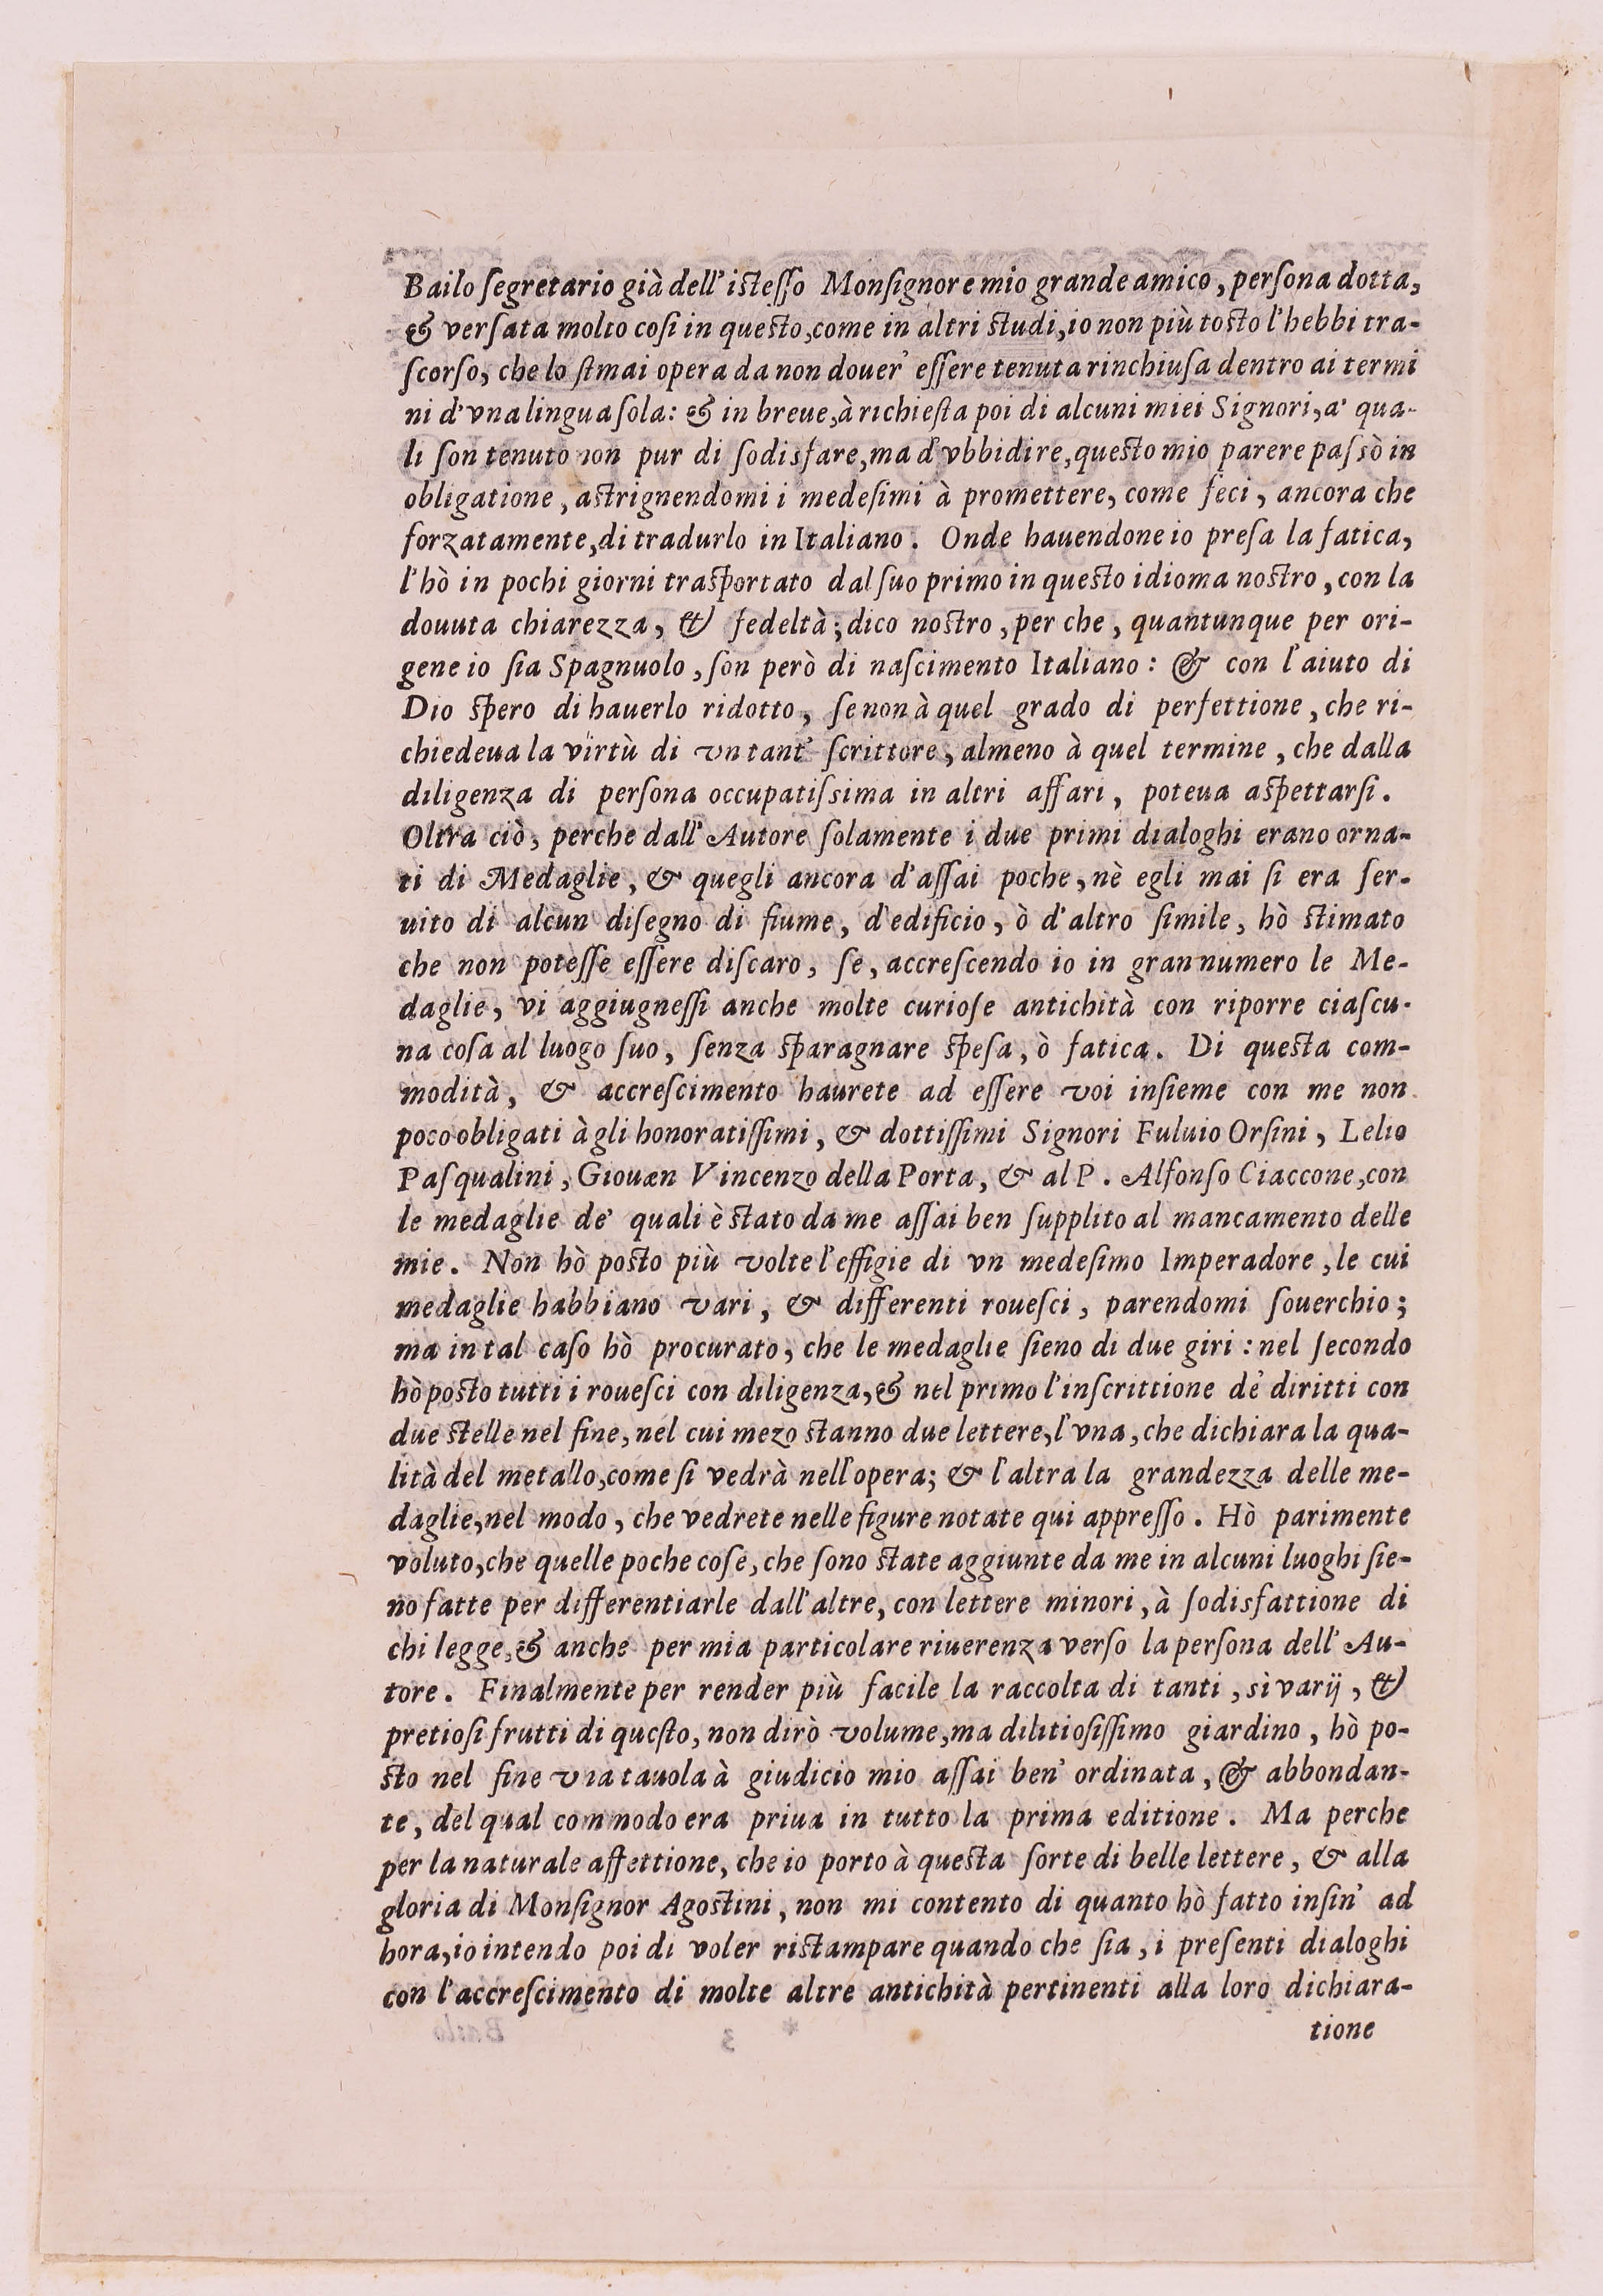 Bailo ſegretario già dell'iſteſſo Monſignore mio grande amico, perſona dotta,
& verſata molto coſi in queſto, come in altri ſtudi, io non più toſto l'hebbi tra-
ſcorſo, che lo ſtmai opera da non douer' eſſere tenuta rinchiuſa dentro ai termi
ni d'vna lingua ſola: & in breue, à richieſta poi di alcuni miei Signori, a' qua-
li ſon tenuto non pur di ſodisfare, ma d'vbbidire, queſto mio parere paſsò in
obligatione, aſtrignendomi i medeſimi à promettere, come feci, ancora che
forzatamente, di tradurlo in Italiano. Onde hauendone io preſa la fatica,
l'hò in pochi giorni traſportato dal ſuo primo in queſto idioma noſtro, con la
douuta chiarezza, & fedeltà; dico noſtro, per che, quantunque per ori-
gene io ſia Spagnuolo, ſon però di naſcimento Italiano: & con l'aiuto di
Dio ſpero di hauerlo ridotto, ſe non à quel grado di perfettione, che ri-
chiedeua la virtù di vn tant' ſcrittore, almeno à quel termine, che dalla
diligenza di perſona occupatiſsima in altri affari, poteua aſpettarſi.
Oltra ciò, perche dall'Autore ſolamente i due primi dialoghi erano orna-
ti di Medaglie, & quegli ancora d'aſſai poche, nè egli mai ſi era ſer-
uito di alcun diſegno di fiume, d'edificio, ò d'altro ſimile, hò ſtimato
che non poteſſe eſſere diſcaro, ſe, accreſcendo io in gran numero le Me-
daglie, vi aggiugneſſi anche molte curioſe antichità con riporre ciaſcu-
na coſa al luogo ſuo, ſenza ſparagnare ſpeſa, ò fatica. Di queſta com-
modità, & accreſcimento haurete ad eſſere voi inſieme con me non
poco obligati à gli honoratiſſimi, & dottiſſimi Signori Fuluio Orſini, Lelio
Paſqualini, Giouæn Vincenzo della Porta, & al P. Alfonſo Ciaccone, con
le medaglie de' quali è ſtato da me aſſai ben ſupplito al mancamento delle
mie. Non hò poſto più volte l'effigie di vn medeſimo Imperadore, le cui
medaglie habbiano vari, & differenti roueſci, parendomi ſouerchio;
ma in tal caſo hò procurato, che le medaglie ſieno di due giri: nel ſecondo
hò poſto tutti i roueſci con diligenza, & nel primo l'inſcrittione de' diritti con
due ſtelle nel fine, nel cui mezo ſtanno due lettere, l'vna, che dichiara la qua-
lità del metallo, come ſi vedrà nell'opera; & l'altra la grandezza delle me-
daglie, nel modo, che vedrete nelle figure notate qui appreſſo. Hò parimente
voluto, che quelle poche coſe, che ſono ſtate aggiunte da me in alcuni luoghi ſie-
no fatte per differentiarle dall'altre, con lettere minori, à ſodisfattione di
chi legge, & anche per mia particolare riuerenza verſo la perſona dell'Au-
tore. Finalmente per render più facile la raccolta di tanti, sì varij, &
pretioſi frutti di queſto, non dirò volume, ma dilitioſiſſimo giardino, hò po-
ſto nel fine vna tauola à giudicio mio aſſai ben' ordinata, & abbondan-
te, del qual commodo era priua in tutto la prima editione. Ma perche
per la naturale affettione, che io porto à queſta ſorte di belle lettere, & alla
gloria di Monſignor Agoſtini, non mi contento di quanto hò fatto inſin' ad
hora, io intendo poi di voler riſtampare quando che ſia, i preſenti dialoghi
con l'accreſcimento di molte altre antichità pertinenti alla loro dichiara-
tione